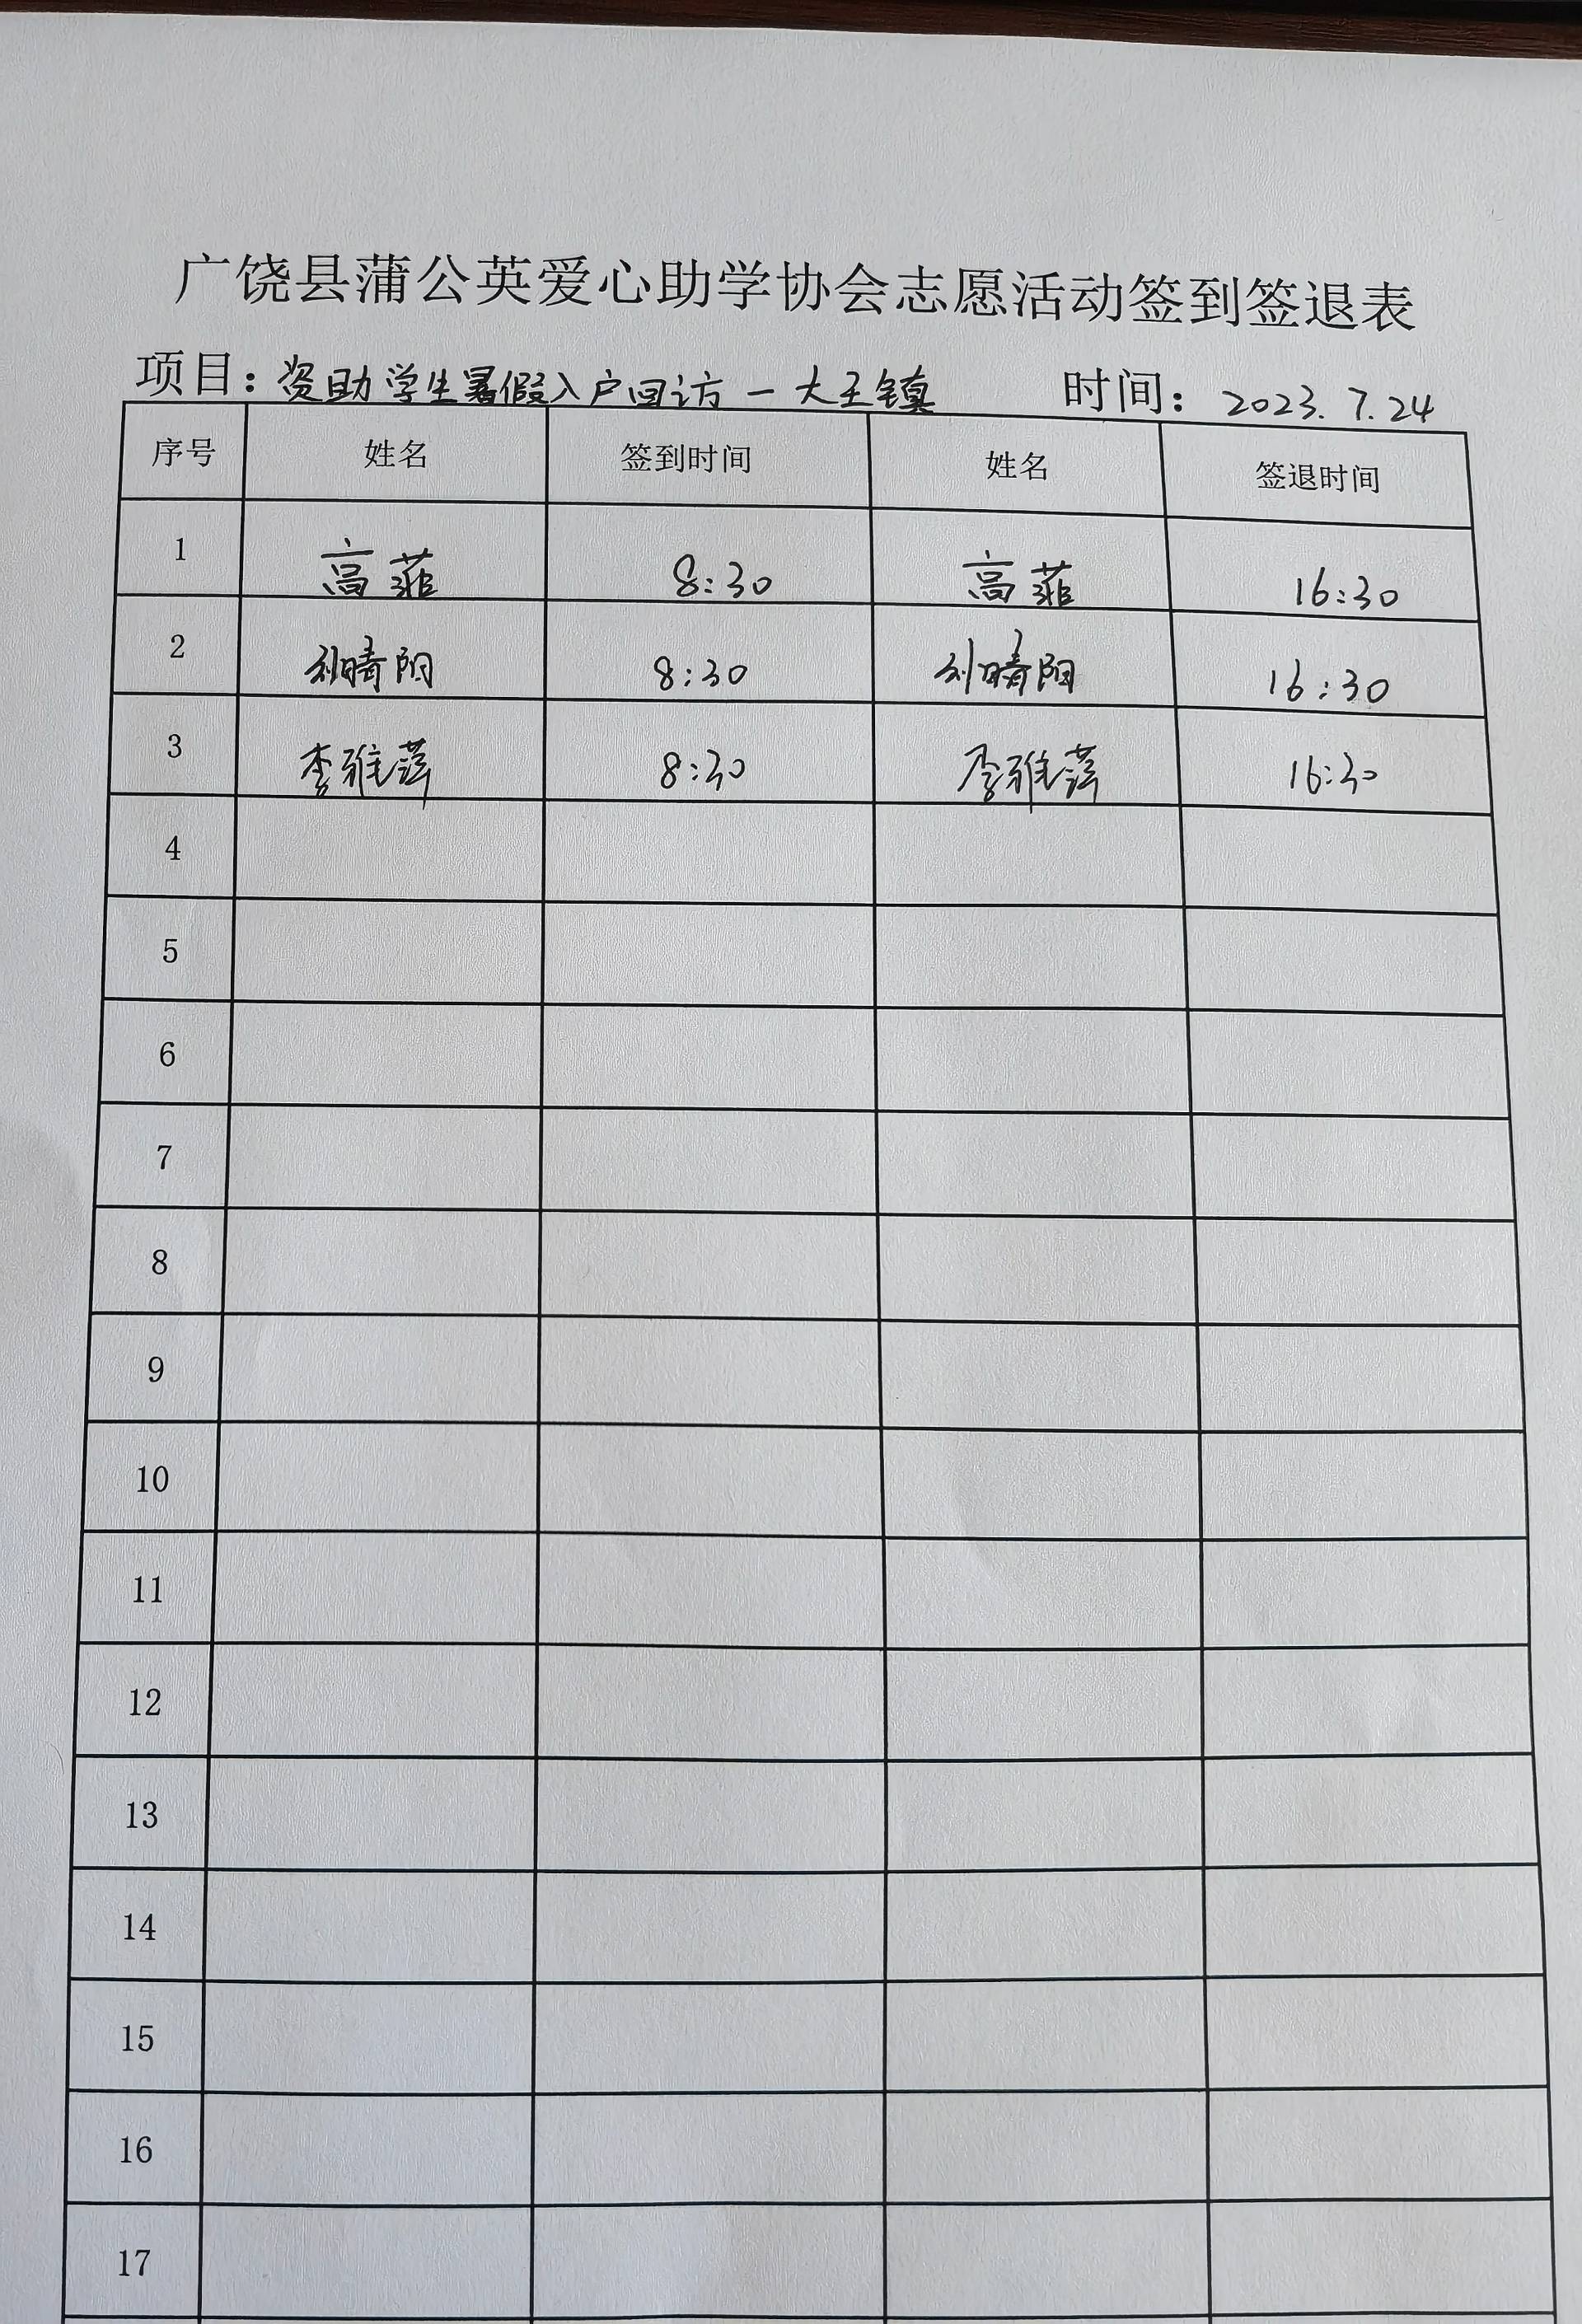 广饶县蒲公英爱心助学协会志愿活动签到签退表
项目：资助学生暑假入户回访－大王镇 时间：2023.7.24
序号 姓名 签到时间 姓名 签退时间
1 高菲 8:30 高菲 16:30
2 刘晴阳 8:30 刘晴阳 16:30
3 李雅萍 8:30 李雅萍 16:30
4
5
6
7
8
9
10
11
12
13
14
15
16
17